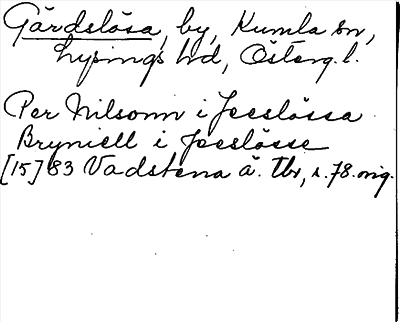 Gärdslösa, by, Kumla sn,
Lysings hd, Österg. l.
Per Nilsonn i Jeeslössa
Bryniell i Joeslösse
[15]83 Vadstena ä. Tbr, s. 78. orig.